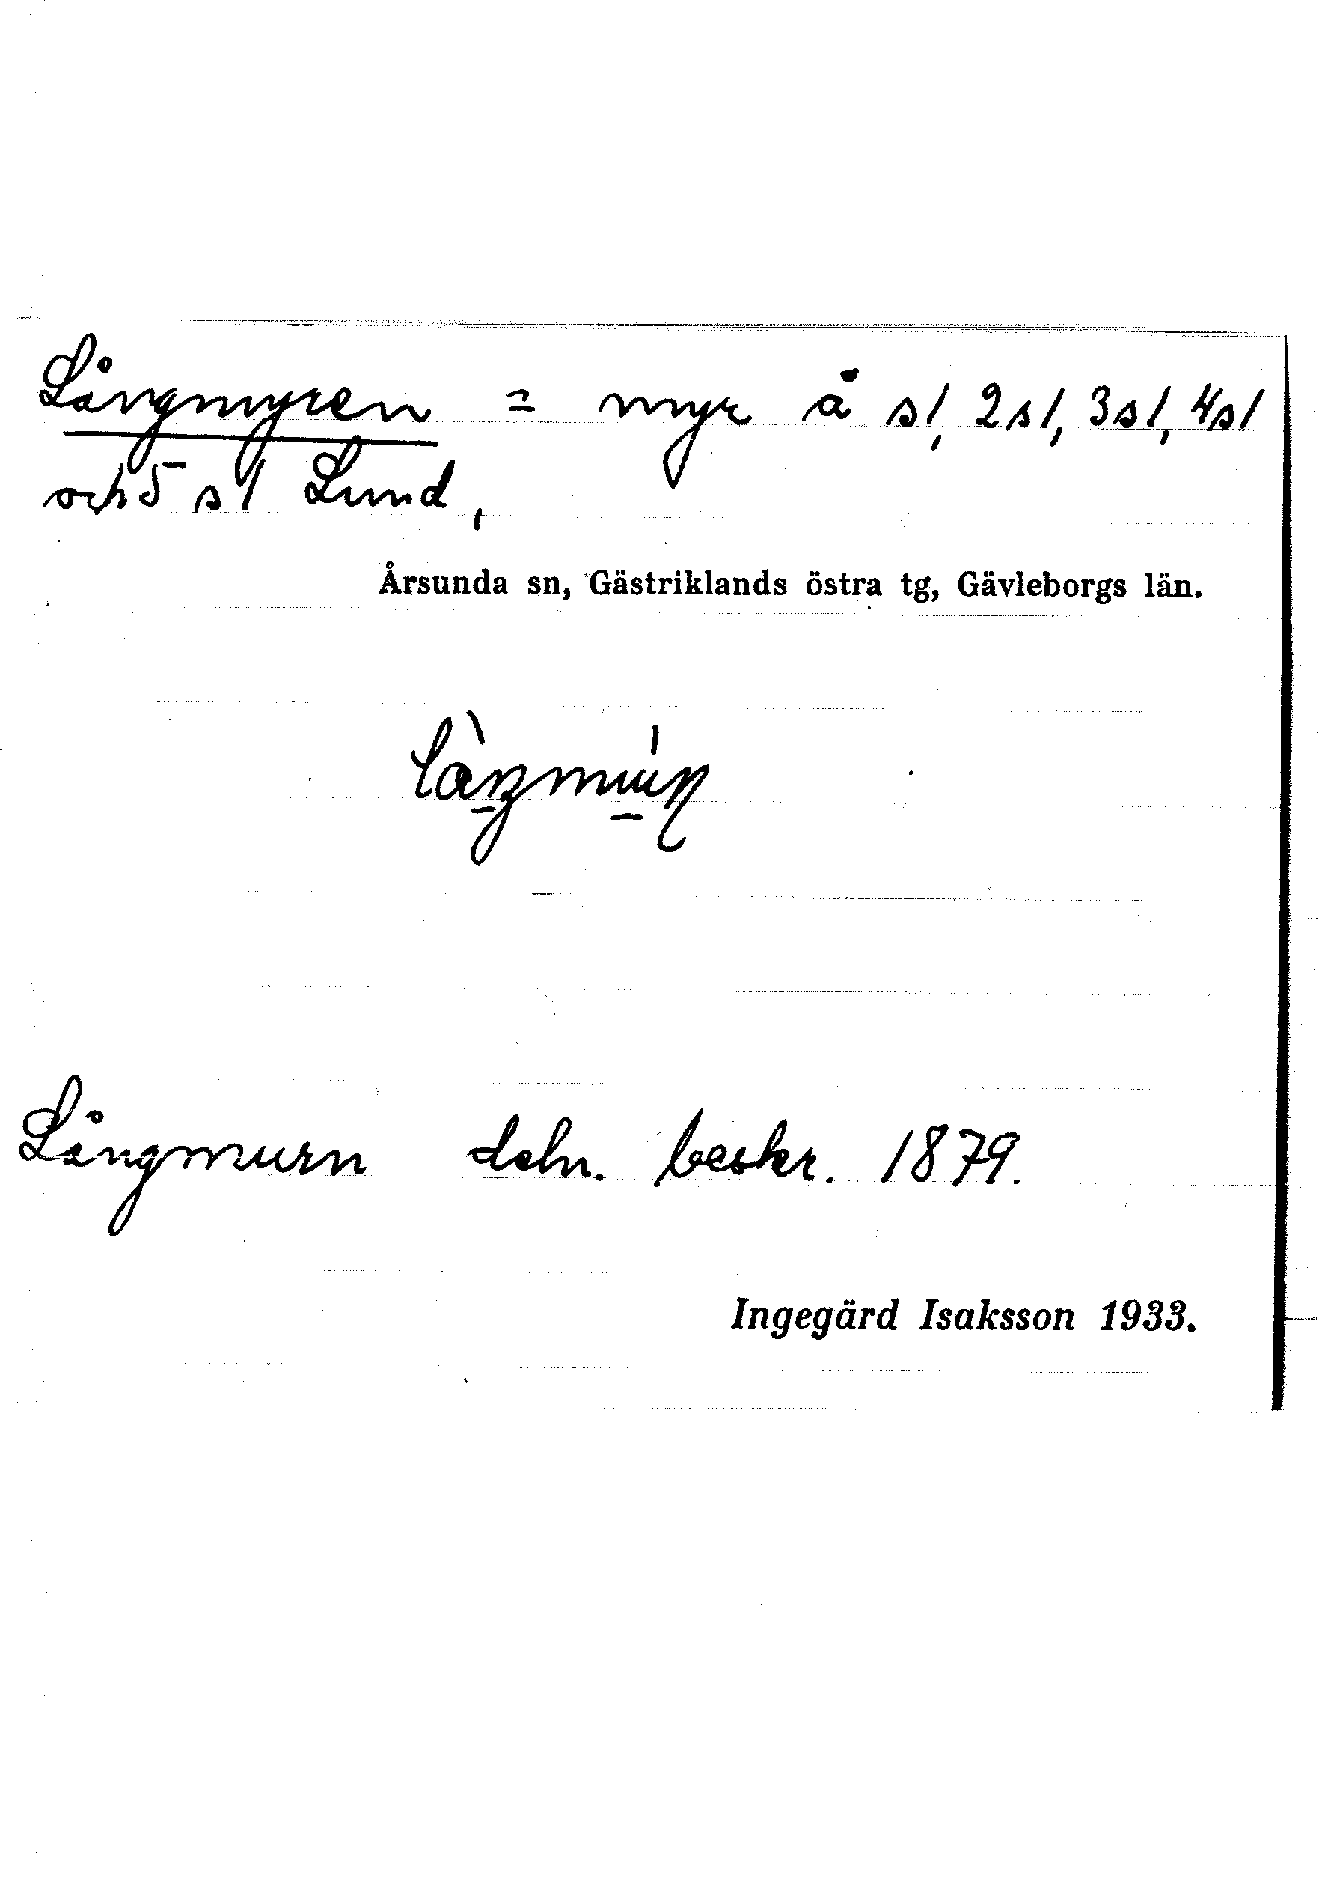 Långmyren = myr å s/, 2s/, 3s/, 4s/
och 5 s/ Lund,
Årsunda sn, Gästriklands östra tg, Gävleborgs län.
Långmurn deln. beskr. 1879.
Ingegärd Isaksson 1933.